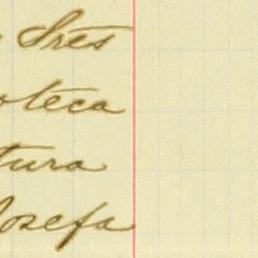 tres
oteca
tura
Josefa